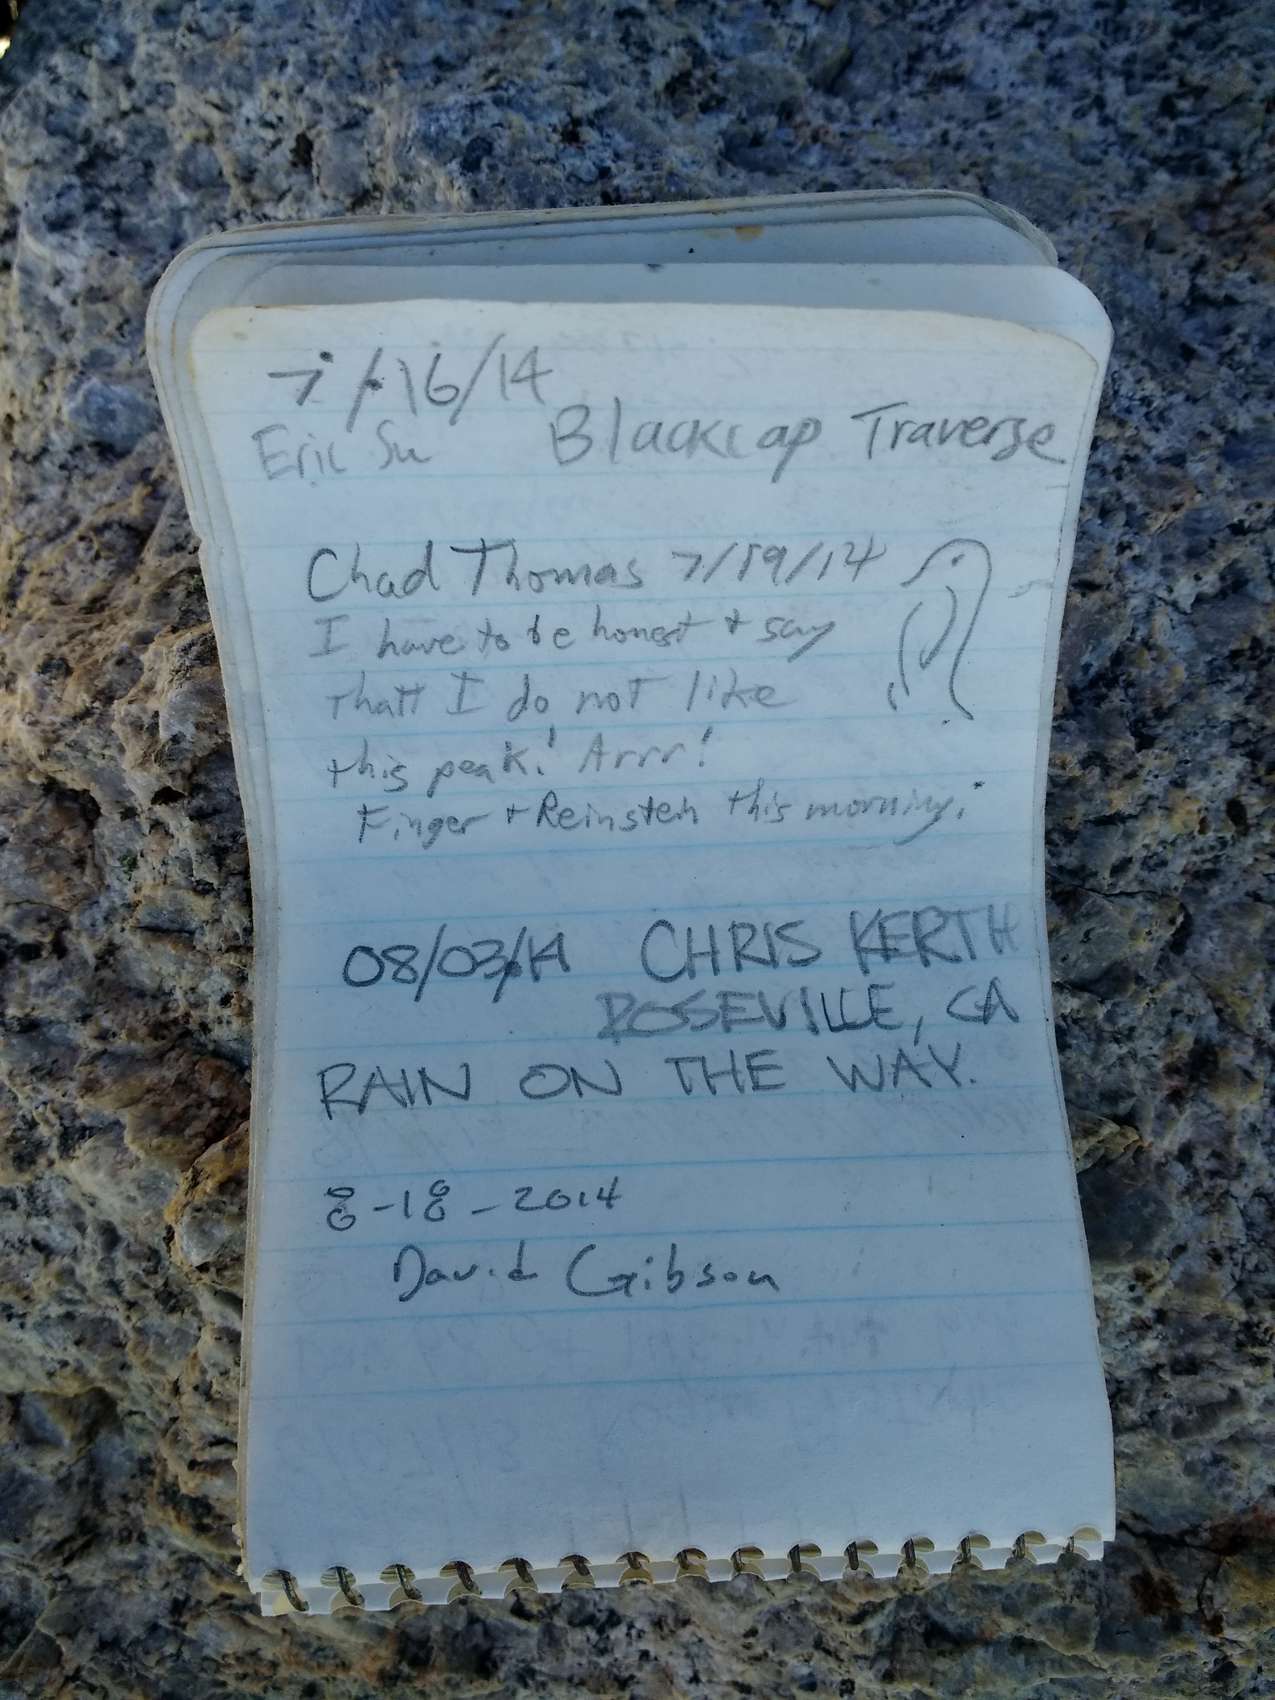 7/16/14
Eric Su Blackcap Traverse
Chad Thomas 7/19/14
I have to be honest + say
thatt I do not like
this peak! Arrr!
Finger + Reinstein this morning.
08/03/14 CHRIS KERTH
ROSEVILLE, CA
RAIN ON THE WAY.
8-18-2014
David Gibson